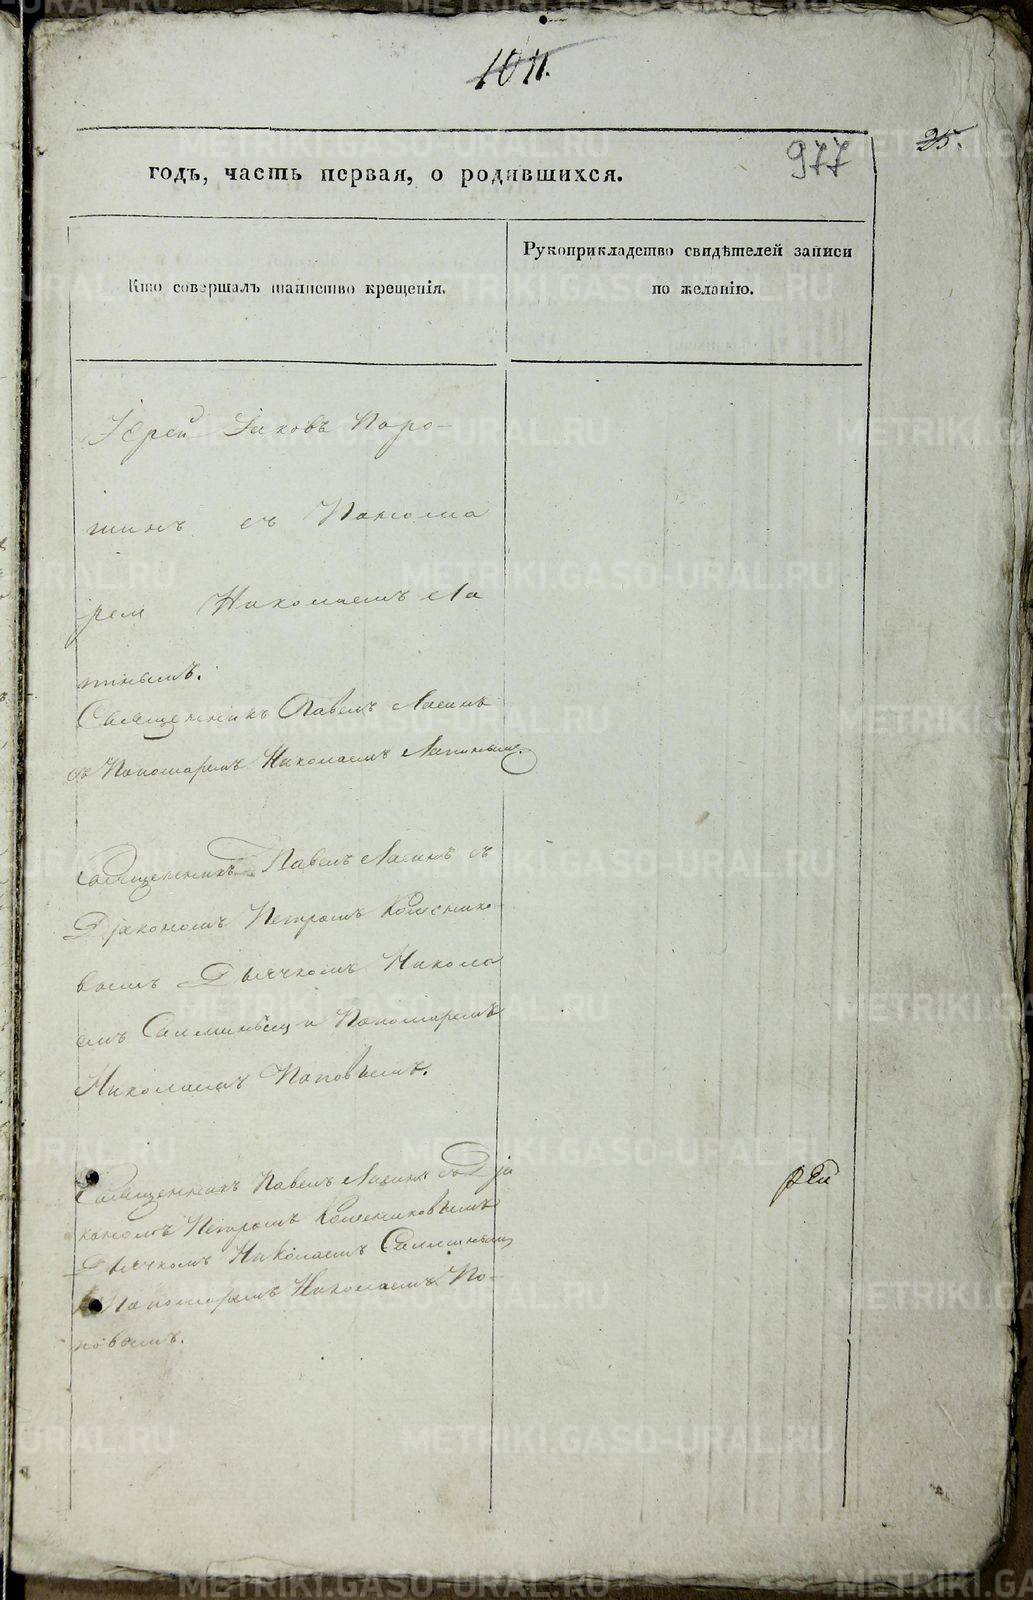 1011.
977
25.
годъ, часть первая, о родившихся.
Кто совершалъ таинство крещенія.
Рукоприкладство свидѣтелей записи
по желанію.
Іерей Іаковъ Поро-
шинъ съ Понома
рем Николаемъ Ла
пинымъ.
Священникъ Павелъ
съ Пономаремъ Николаемъ Лапинымъ.
Священникъ Павелъ съ
Діакономъ Петромъ Колеснико
вымъ Дьячкомъ Никола
емъ и Пономаремъ
Николаемъ Поповымъ.
Священникъ Павелъ съ Діа
кономъ Петромъ Колесниковымъ
Дьячкомъ Николаемъ
и Пономаремъ Николаемъ По-
повымъ.
рей
METRIKI.GASO-URAL.RU